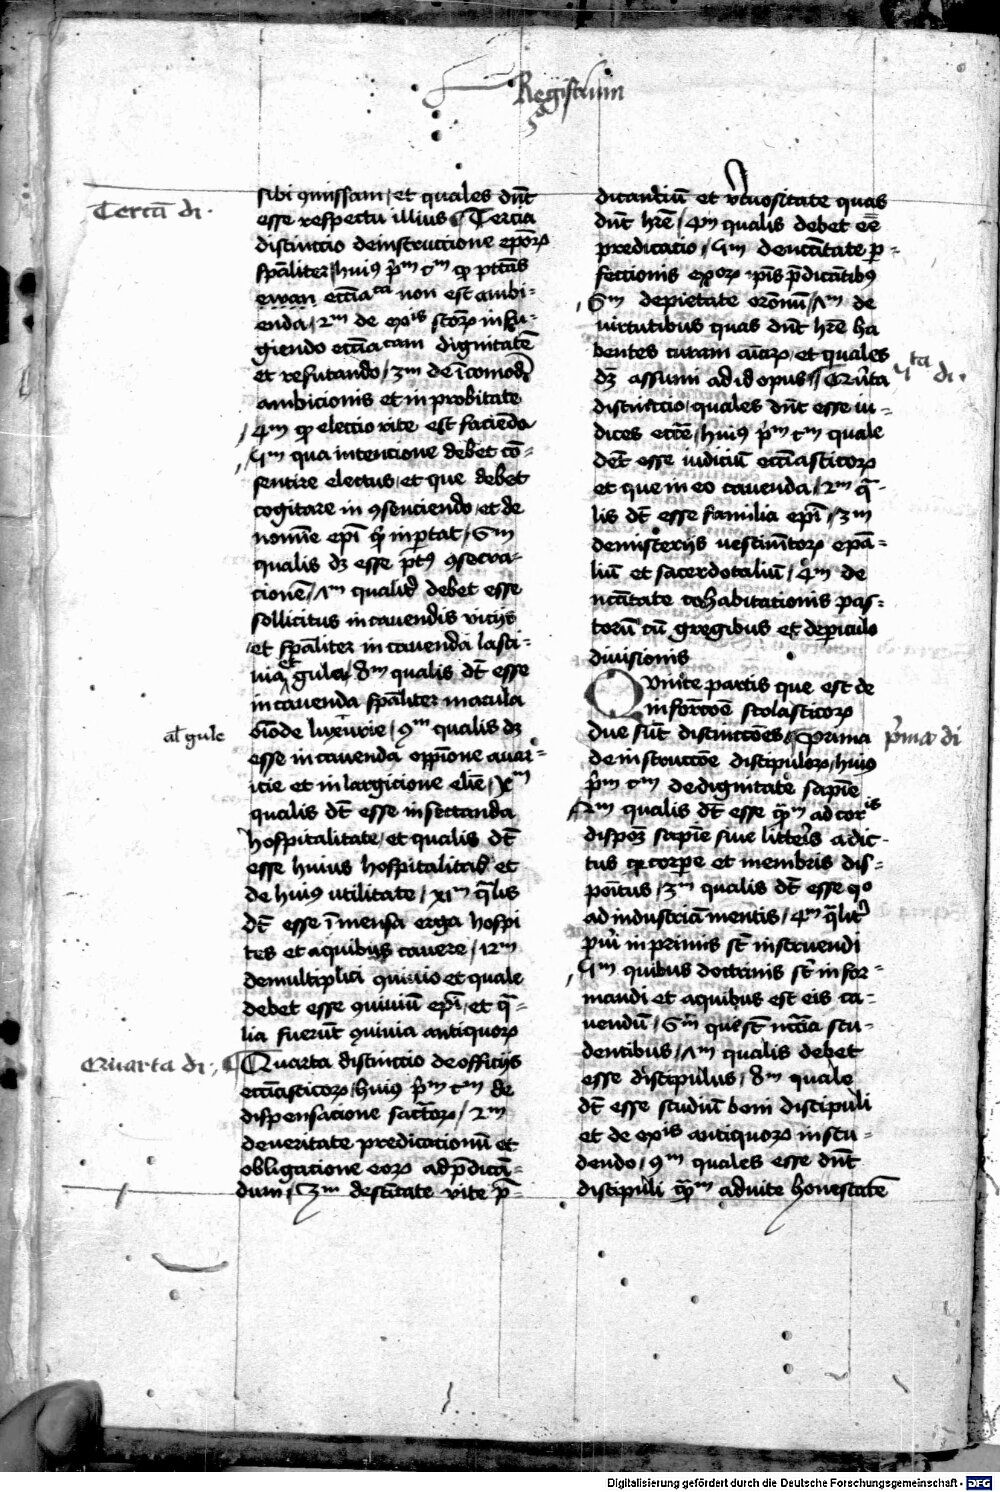 Registrum
Tercia di.
sibi ꝯmissam / et quales dn̄t
esse respectu illius Tercia
distinctio de instructione ep̄oꝝ
sp̄aliter / huiꝰ p̄m c̄m ꝙ p̄t̄tas
ecc̄iastica non est ambi-
enda / 2m de exꝰis sc̄oꝝ in fu-
giendo ecc̄iasticam dignitatē
et refutando / 3m de īcomodꝭ
ambicionis et inprobitate
4m ꝙ electio rite est facienda
5m qua intencione debet cō-
sentire electus / et que debet
cogitare in ꝯsenciendo / et de
nomīe ep̄i qd̄ inp̄tat / 6m
qualis dꝫ esse p̄ꝰ ꝯsecra-
cionē / 7m qualit̄ debet esse
sollicitus in cauendis vicijs
et sp̄aliter in cauenda lasci-
uia et gule / 8m qualis dt̄ esse
in cauenda sp̄aliter macula
luxurie / 9m qualis dꝫ
esse in cauenda opp̄ione auar-
icie et in largicione elīe / xm
qualis dt̄ esse in sectanda
hospitalitate / et qualis dt̄
esse huius hospitalitas et
de huiꝰ utilitate / xim q̄lis
dt̄ esse ī mensa erga hospi
tes et a quibus cauere / 12m
de multiplici ꝯuiuio et quale
debet esse ꝯuiuiū ep̄i / et q̄-
lia fuerūt ꝯuiuia antiquoꝝ
al' gule
Quarta di.
Quarta distinctio de officijs
ecc̄iasticoꝝ / huiꝰ p̄m c̄m de
dispensacione sac̄toꝝ / 2m
de veritate predicationū et
obligacione eoꝝ ad p̄dicā-
dum / 3m de sc̄itate vite p̄-
dicantiū et v̄tuositate quas
dn̄t hr̄e / 4m qualis debet eē
predicatio / 5m de nc̄itate p̄-
fectionis exꝑoꝝ ip̄is p̄dicātibꝰ
6m de pietate or̄onū / 7m de
uirtutibus quas dn̄t hr̄e ha
bentes curam aīaꝝ / et quales
dꝫ assumi ad id opus Quīta
5ta di.
distinctio / quales dn̄t esse iu-
dices ecc̄e / huiꝰ p̄m c̄m quale
det̄ esse iudiciū ecc̄iasticoꝝ
et que in eo cauenda / 2m q̄-
lis dt̄ esse familia ep̄i / 3m
de misterijs uestimētoꝝ ep̄a-
liū et sacerdotaliū / 4m de
nc̄itate cohabitationis pas-
torū cū gregibus et de periculo
diuisionis
Quinte partis que est de
in formōe scolasticoꝝ
due sūt distinctōes Prima
p̄ma di
de instructōe discipuloꝝ / huiꝰ
p̄m c̄m de dignitate sapīe
2m qualis dt̄ esse q̄m ad coris
dispoꝫ sapīe siue litteris adic-
tus ꝙ corpe et membris dis-
poītus / 3m qualis dt̄ esse qo
ad industriā mentis / 4m q̄lit̄
pui inprimis st̄ instruendi
5m quibus doctrinis st̄ infor-
mandi et a quibus est eis ca-
uendū / 6m que st̄ nc̄cīa stu-
dentibus / 7m qualis debet
esse discipulus / 8m quale
dt̄ esse studiū boni discipuli
et de exꝰis antiquoꝝ in stu-
dendo / 9m quales esse dn̄t
discipuli q̄m ad uite honestatē
Digitalisierung gefördert durch die Deutsche Forschungsgemeinschaft - DFG